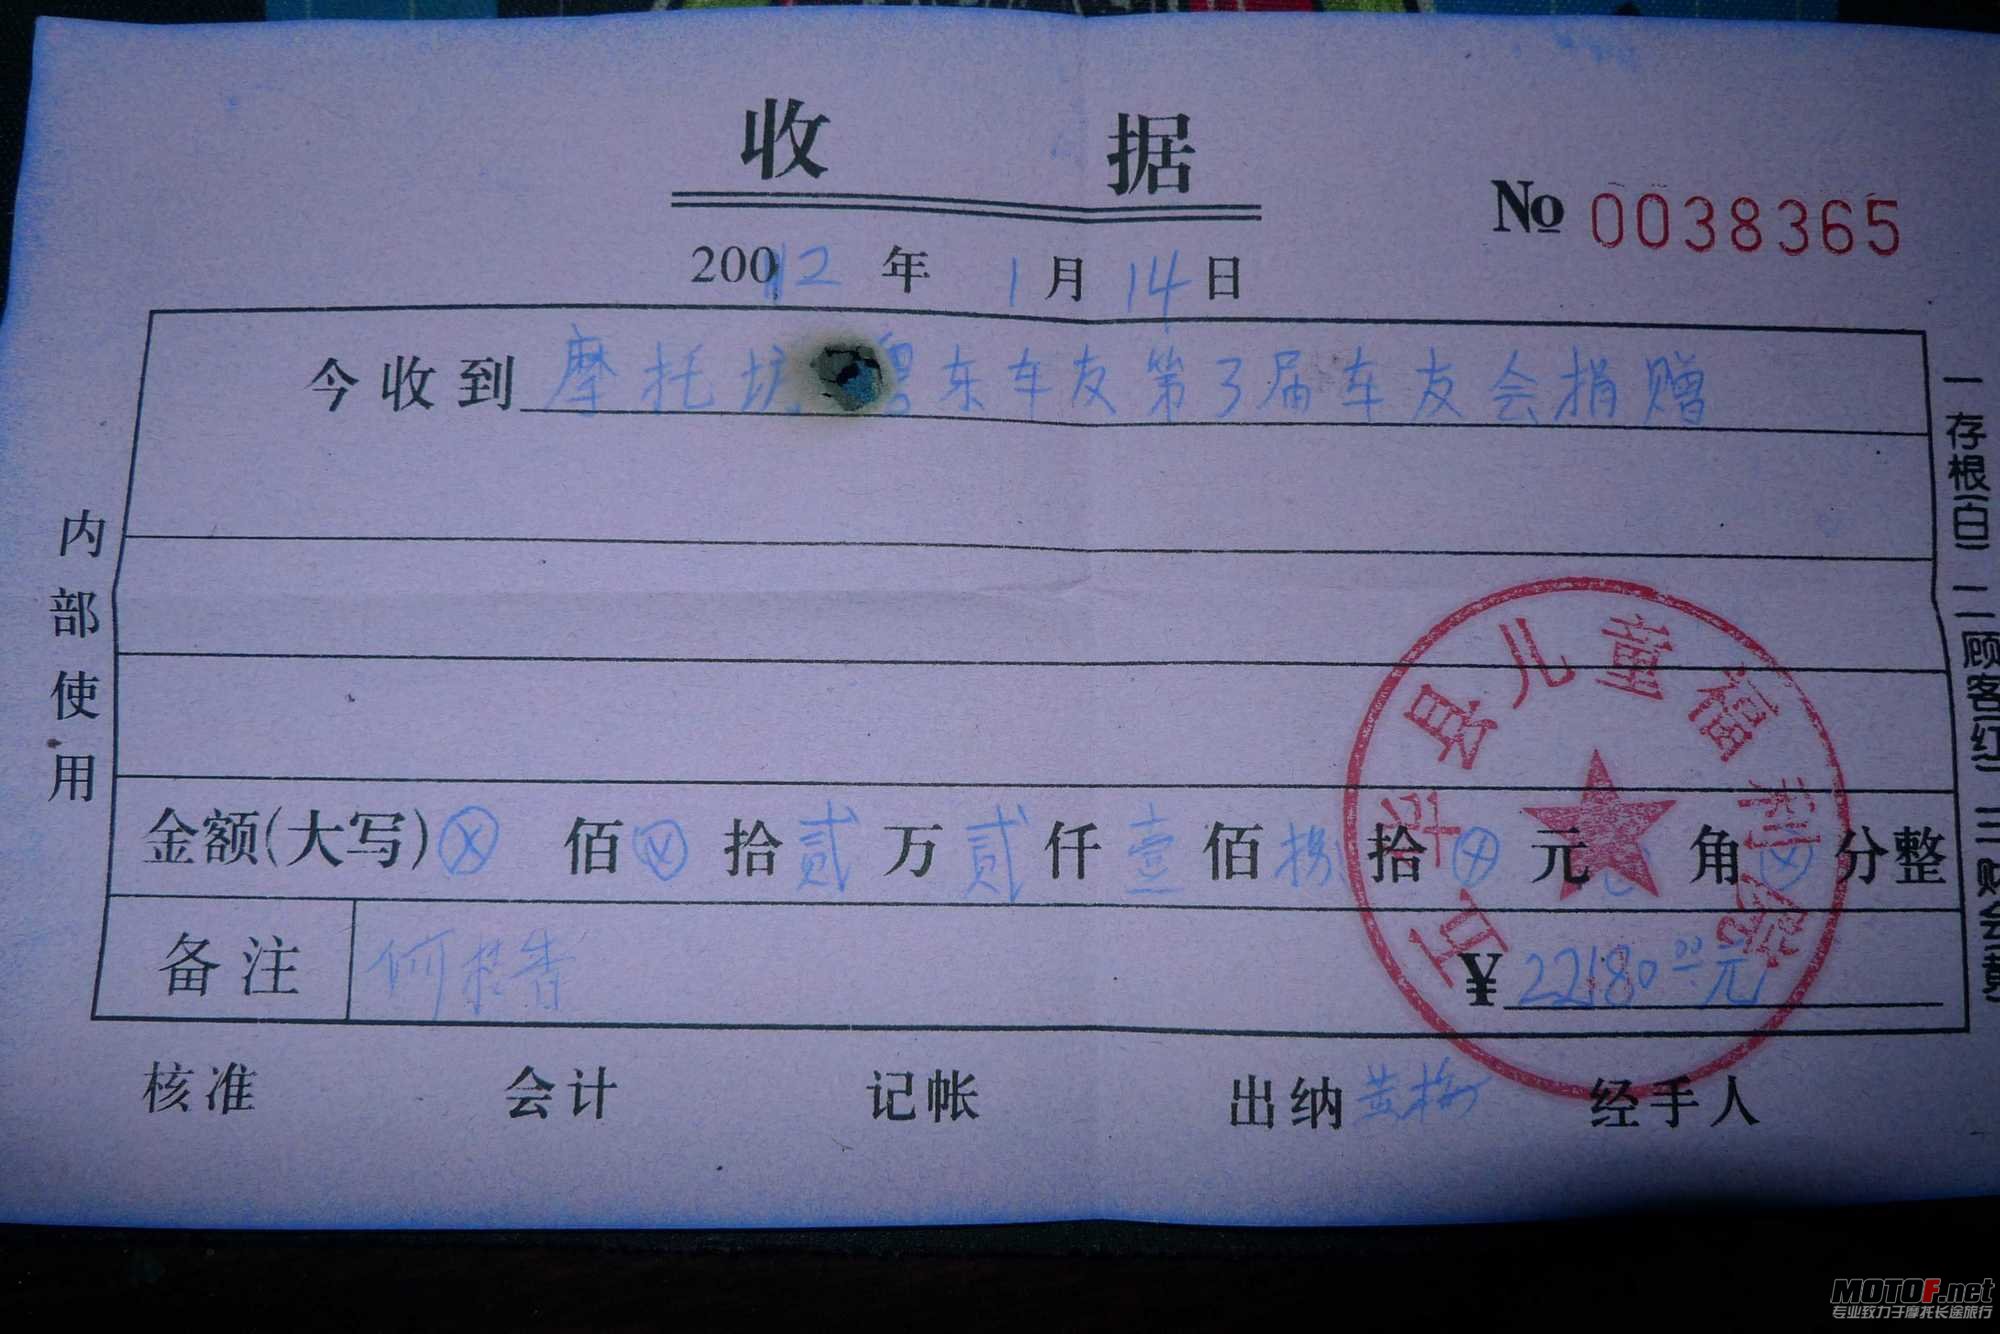 收 据
No 0038365
20012 年 1 月 14 日
今收到 摩托坊粤东车友第3届车友会捐赠
金额(大写)ⓧ 佰ⓧ 拾贰 万贰 仟壹 佰捌 拾ⓧ 元 角ⓧ 分整
备注 何桂香 ¥22180.00元
核准 会计 记帐 出纳 黄梅 经手人
内部使用
一存根(白) 二顾客(红) 三财会(黄
县儿童福利院
MOTOF.net
专业致力于摩托长途旅行